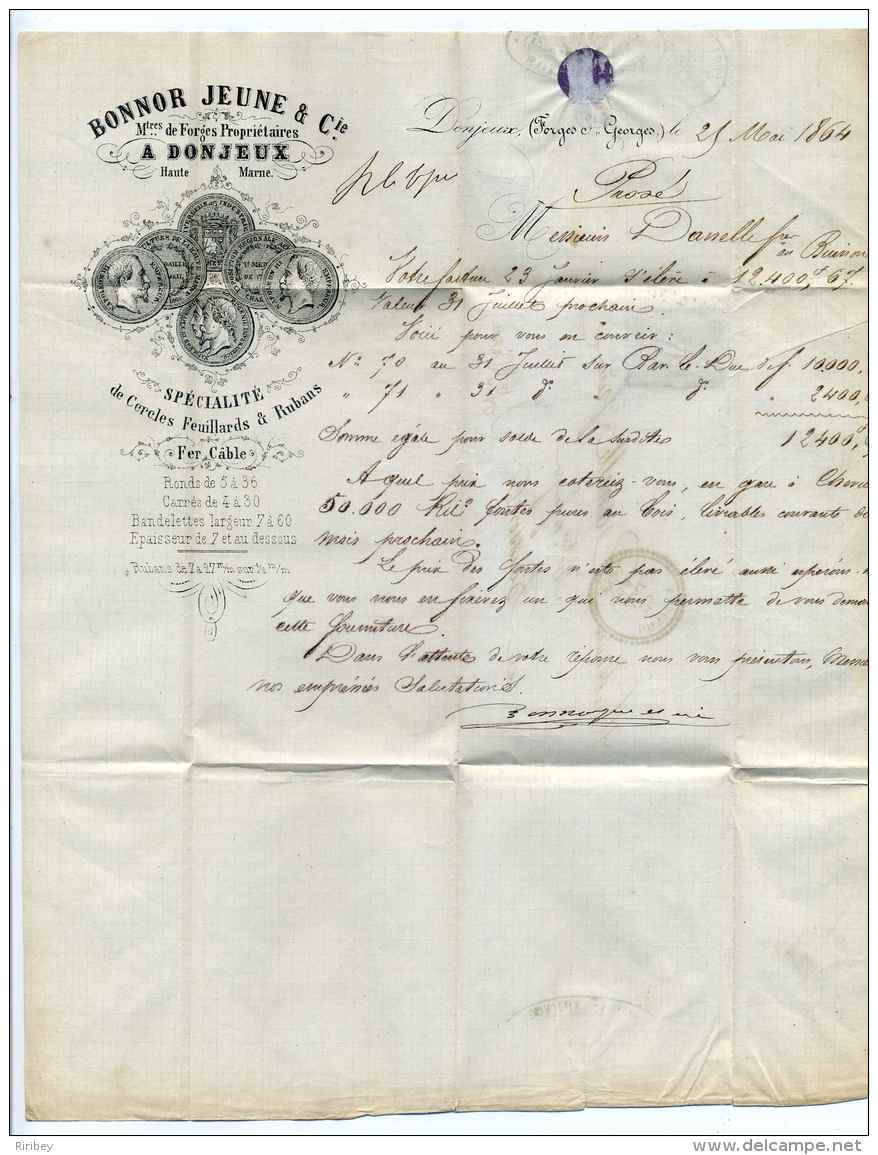 BONNOR JEUNE & Cie
Mtres de Forges Propriétaires
A DONJEUX
Haute Marne.
SPÉCIALITÉ
de Cercles Feuillards & Rubans
Fer Câble
Ronds de 5 à 36
Carrés de 4 à 30
Bandelettes largeur 7 à 60
Epaisseur de 7 et au dessous
Rubans de 7 à 27 m/m sur 1/2 m/m.
Donjeux, (Forges St Georges,) le 25 Mai 1864
Messieurs Danelle
Votre facture 23 Janvier s'élève à 12.400,f 67
Valeur 31 Juillet prochain.
Voici pour vous en couvrir:
No 70 au 31 Juillet sur Bar-le-Duc de f. 10.000,
" 71 " 31 do do " 2400,
Somme égale pour solde de la susdite 12400,
A quel prix nous coteriez-vous, en gare à
50.000 Kilo fontes pures au bois, livrables courant de
mois prochain.
Le prix des fontes n'est pas élevé aussi espérons-n
que vous nous en fixerez un qui nous permette de vous dema
cette fourniture.
Dans l'attente de votre réponse nous vous présentons, Messi
nos empressées Salutations.
Ribey
www.delcampe.net